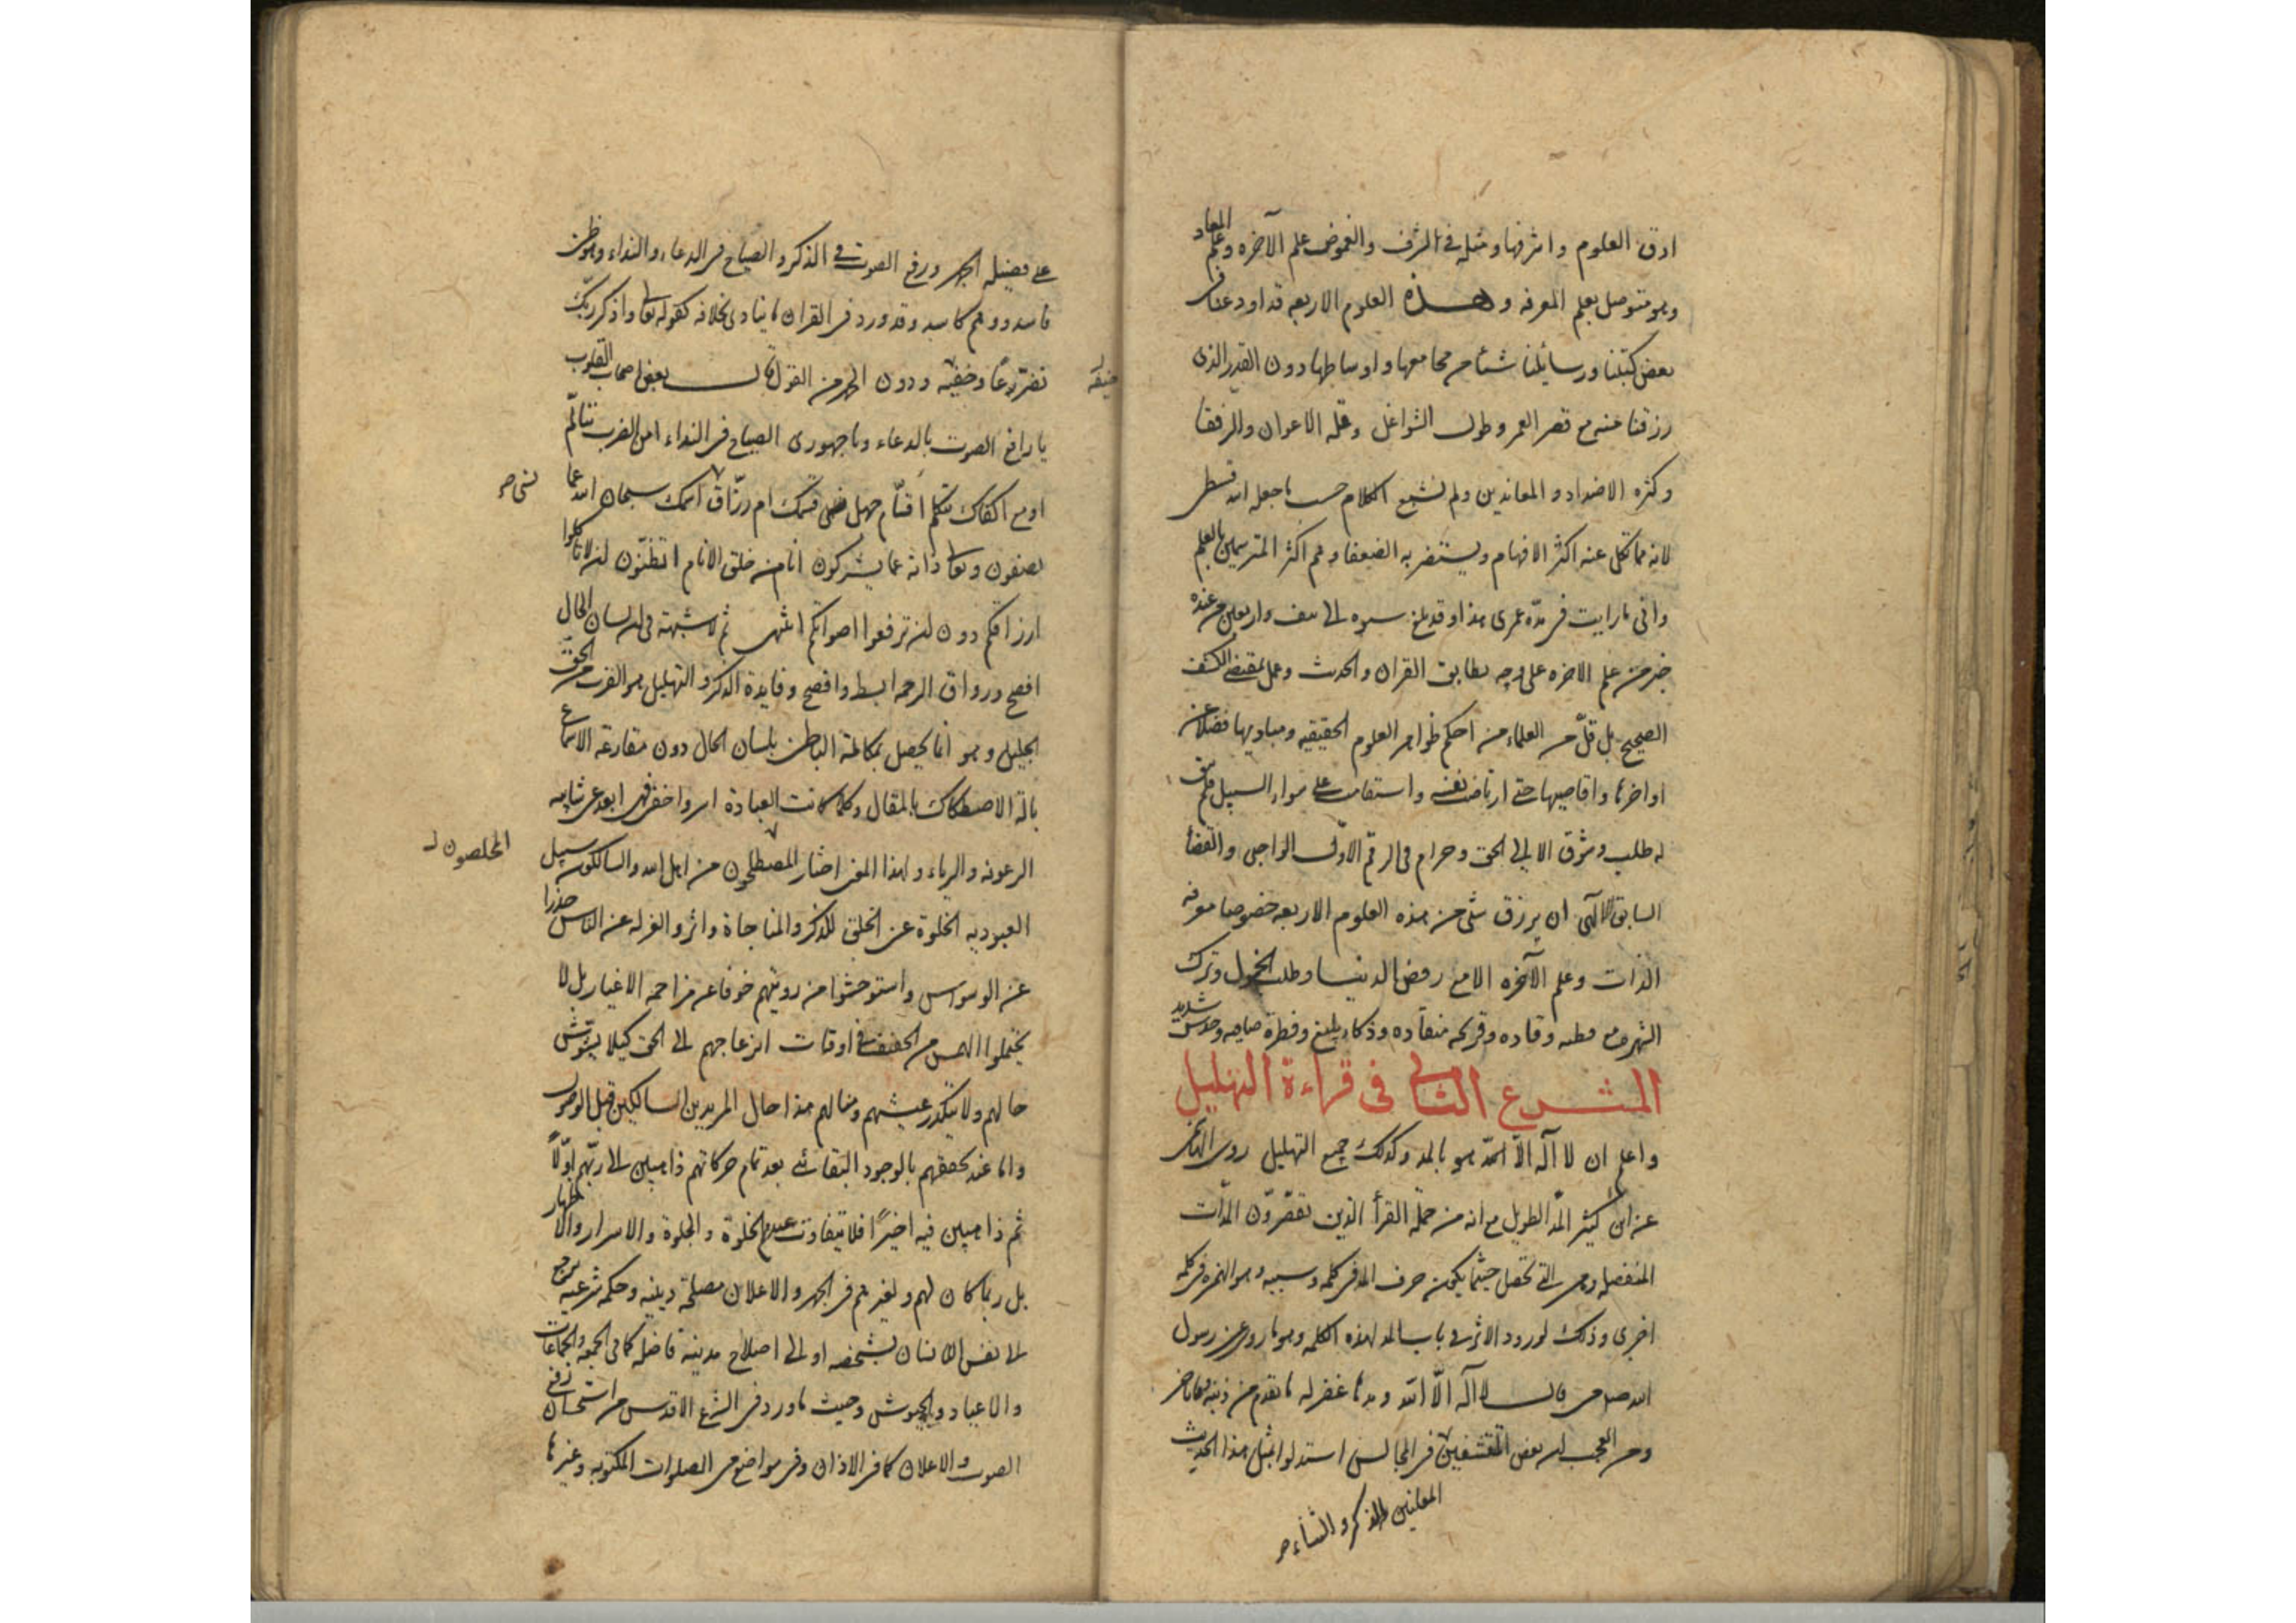 ادق العلوم واشرفها ومثله في الشرف والغموض علم الآخره وعلم المعاد
وهو متوصل بعلم المعرفه وهذه العلوم الاربعه قد اودعنا في
بعض كتبنا ورسائلنا شيئا من مجامعها واوساطها دون القدر الذى
رزقنا منه مع قصر العمر وطول الشواغل وقله الاعوان والرفقا
وكثره الاضداد والمعاندين ولم نشبع الكلام حسب ما جعل الله قسطى
لانه مما تكل عنه اكثر الافهام ويستضر به الضعفاء وهم اكثر المترسمين بالعلم
وانى ما رايت فى مدّه عمرى هذا وقد بلغ سيره الى نيف واربعين من عنده
خبر من علم الاخره على وجه يطابق القران والحدث وعمل بمقتضى الكشف
الصحيح بل قلّ من العلماء من احكم ظواهر العلوم الحقيقيه ومباديها فضلا عن
اواخرها واقاصيها حتى ارتاض نفسه واستقامت على سواء السبيل فلم يبق
له طلب وشوق الا الى الحق وحرام فى الرقم الاول الواجبى والقضا
السابق الالهى ان يرزق شئ من هذه العلوم الاربعه خصوصا معرفه
الذات وعلم الآخره الا مع رفض الدنيا وطلب الخمول وترك
الشهره مع فطنه وقاده وقريحه منقاده وذكاء بليغ وفطرة صافيه وحدس شديد
المشرع الثانى فى قراءة التهليل
واعلم ان لا آله الّا الله هو بالمد وكذلك جميع التهليل روى
عن ابن كثير المدّ الطويل مع انه من جملة القرأ الذين يقصرون المدّات
المنفصله وهى التى تحصل حيثما يكون حرف المد فى كلمه وسببه وهو الهمزه فى كلمه
اخرى وذلك لورود الاثر فى باب المد لهذه الكلمه وهو ما روى عن رسول
الله صلى من قال لا آله الّا الله ومدها غفر له ما تقدم من ذنبه وما تاخر
ومن العجب ان بعض المتقشفين فى المجالس استدلوا بمثل هذا الحديث
المعلنين بالذكر والثناء صح
على فضيله الجهر ورفع الصوت فى الذكر والصياح فى الدعاء والنداء وهو ظن
فاسد ووهم كاسد وقد ورد فى القران ما ينادى بخلافه كقوله تعا واذكر ربّك
تضرّعًا وخفيه ودون الجهر من القول قال بعض اصحاب القلوب
خيفه
يا رافع الصوت بالدعاء ويا جهورى الصياح فى النداء امن الضرب تتألّم
او مع اكفاك تتكلم اقسّام جهل فنسى قسمك ام رزّاق اسمك سبحان الله عما
نسى صح
يصفون وتعا ذاته عما يشركون انا من خلق الانام اتظنّون ان لا تاكلوا
ارزاقكم دون ان ترفعوا اصواتكم انتهى ثم لا شبهة فى ان لسان الحال
افصح ورواق الرحمه ابسط وافصح وفايدة الذكر والتهليل هو القرب من الحقّ
الجليل وهو انما يحصل بمكالمة الباطن بلسان الحال دون مقارعة الاسماع
بالة الاصطكاك بالمقال وكلما كانت العبادة اسر واخفى فهى ابعد عن شايبه
الرعونه والرياء ولهذا المعنى اختار المصطلحون من اهل الله والسالكون سبيل
المخلصون ل
العبوديه الخلوة عن الخلق للذكر والمناجاة واثروا العزله عن الناس حذرا
عن الوسواس واستوحشوا من رويتهم خوفا عن مزاحمه الاغيار بل لا
يحتملوا الهمس من الحفيف فى اوقات انزعاجهم الى الحق كيلا يشوش
حالهم ولا يتكدر عيشهم ومنالهم هذا حال المريدين السالكين قبل الوصول
واما عند تحققهم بالوجود البقائى بعد تمام حركاتهم ذاهبين الى ربّهم اوّلاً
ثم ذاهبين فيه اخيراً فلا يتفاوت عندهم الخلوة والجلوة والاسرار والاظهار
بل ربما كان لهم ولغيرهم فى الجهر والاعلان مصلحة دينيه وحكمه شرعيه يرجع
الى نفس الانسان بشخصه او الى اصلاح مدينة فاضله كما فى الجمعه والجماعات
والاعياد والجيوش وحيث ما ورد فى الشرع الاقدس من استحسان رفع
الصوت والاعلان كما فى الاذان وفى مواضع من الصلوات المكتوبه وغيرها